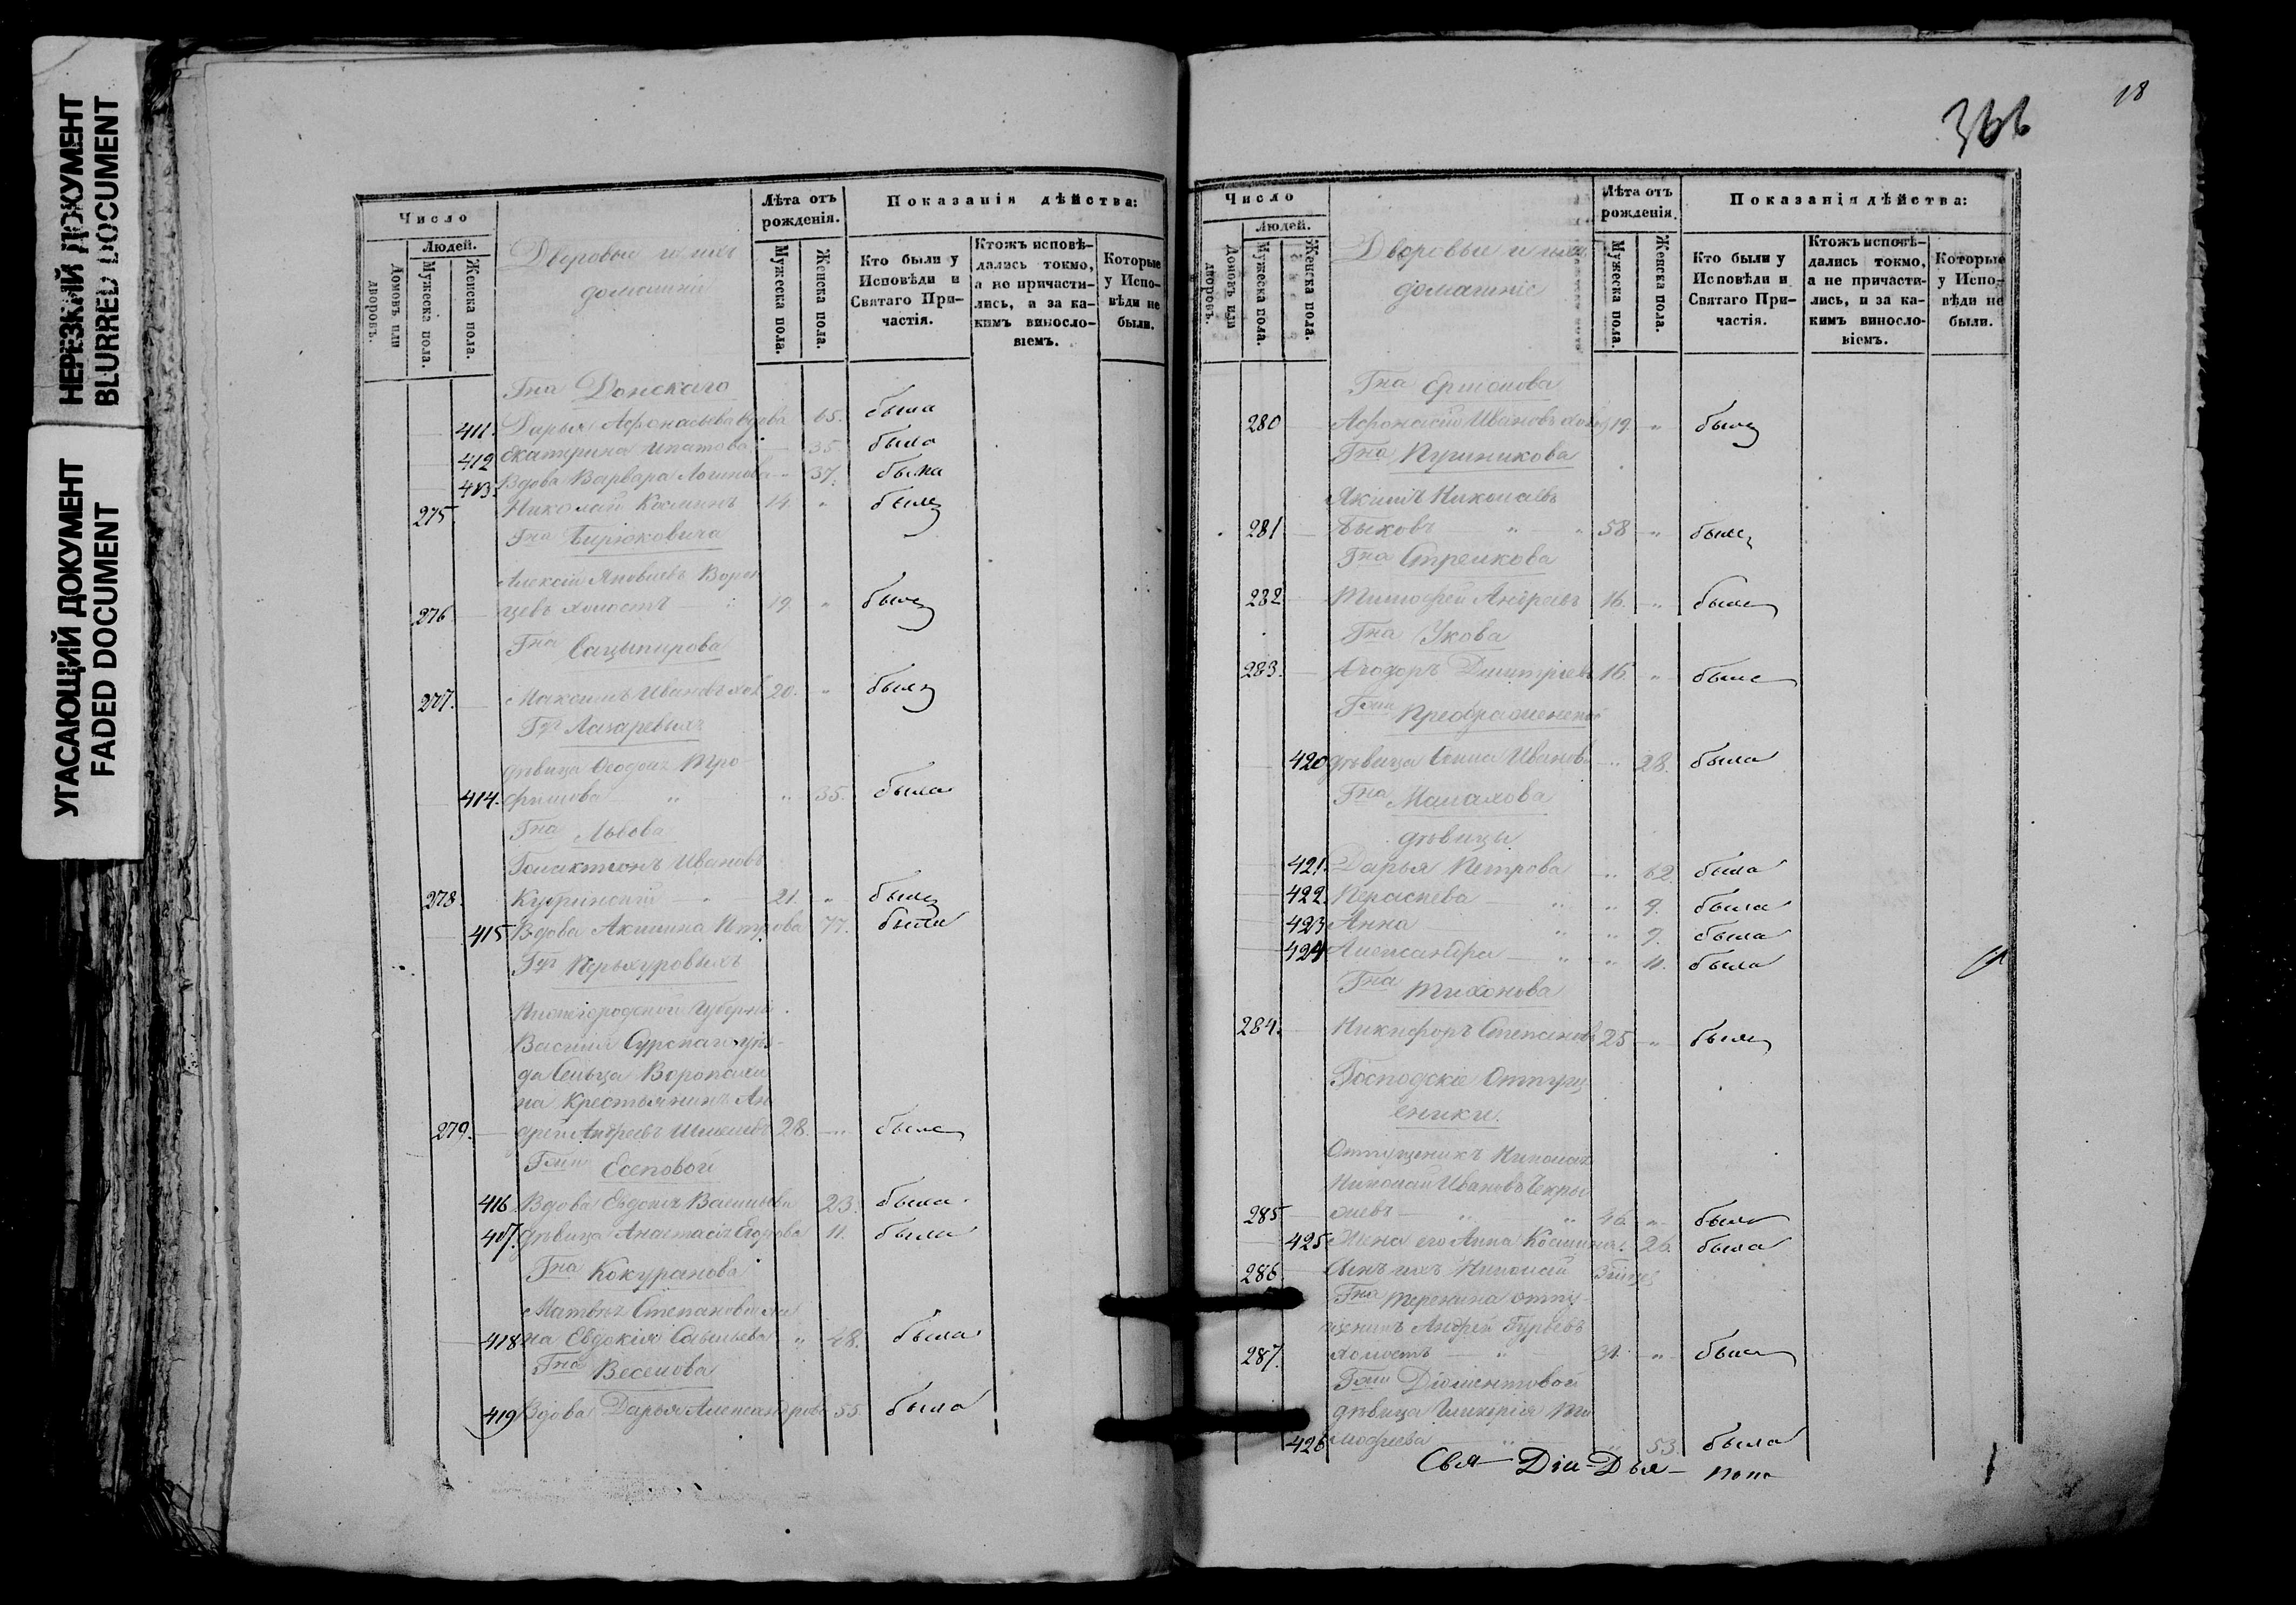 НЕРЕЗКИЙ ДОКУМЕНТ
BLURRED DOCUMENT
УГАСАЮЩИЙ ДОКУМЕНТ
FADED DOCUMENT
Число
Людей.
Домовъ или дворовъ.
Мужеска пола.
Женска пола.
Дворовыи и ихъ
домашнии
Лѣта отъ рожденія.
Мужеска пола.
Женска пола.
Показанія дѣйства:
Кто были у Исповѣди и Святаго Причастія.
Ктожъ исповѣ-
дались токмо,
а не причасти-
лись, и за ка-
кимъ винословіемъ.
Которые
у Испо-
вѣди не
были.
Гна Донскаго
411. Дарья Афонасьева вдова 65. была
412 Екатерина Ипатова 35. была
413. Вдова Варвара Логинова 37. была
275. Николай Косминъ 14. " былъ
Гна Бирюковича
Алексій Яковлевъ Ворон
276 цевъ холостъ 19. " былъ
Гна
277. Максимъ Ивановъ хол 20. " былъ
Лазаревыхъ
дѣвица Ѳеодош Тро
414. фимова " " 35. была
Гна Львова
Галактіонъ Ивановъ
278. 21. " былъ
415 Вдова Акилина Петрова 77. была
Нижегородской Губерніи
Василя Сурскаго уѣз-
да Сельца
на Крестьянинъ Ан
279. дрей Андреевъ 28. " былъ
Гжи Есиповой
416 Вдова Евдокія Васильева 23. была
417. дѣвица Анастасія Егорова 11. была
Гна Кокуранова
Матвѣя Степанова же
418 на Евдокія Савельева " 48. была
Гна Веселова
419 Вдова Дарья Александрова 55. была
366
18
Число
Людей.
Домовъ или дворовъ.
Мужеска пола.
Женска пола.
Дворовыи и ихъ
домашніе
Лѣта отъ рожденія.
Мужеска пола.
Женска пола.
Показанія дѣйства:
Кто были у Исповѣди и Святаго Причастія.
Ктожъ исповѣ-
дались токмо,
а не причасти-
лись, и за ка-
кимъ винословіемъ.
Которые
у Испо-
вѣди не
были.
Гна
280 Афонасій Ивановъ холос 19. " былъ
Гна Пушникова
Якимъ Николаевъ
281 Быковъ " " 58 " былъ
Гна Стрелкова
282 Тимофей Андреевъ 16. " былъ
Гна Укова
283. Ѳеодоръ Дмитріевъ 16. " былъ
Гжи Преображенской
420 дѣвица Анна Иванова " 28. была
Гна Малахова
дѣвицы
421. Дарья Петрова " 62. была
422. " " 9. была
423 Анна " " 9. была
424 Александра " " 11. была
Гна Тихонова
284. Никифоръ Степановъ 25 " былъ
Господскіе Отпущ
еники.
Отпущеникъ
Николай Ивановъ
285 " " 46 " былъ
425 Жена его Анна Космина. 26. была
286. Сынъ ихъ Николай
Гна Теренина отпу
щеникъ Андрей Гурьевъ
287. холостъ " 31. " былъ
Гжи Діоментовой
дѣвица Гликерія Ти
426 мофеева " " 53. была
Свя- Діа- Дья-